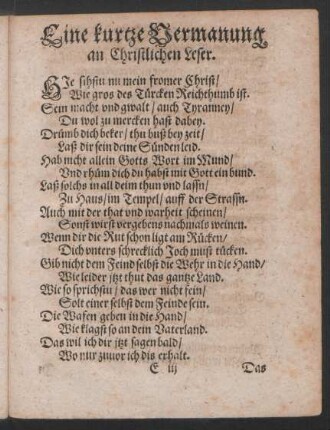 Eine kurtze Vermanung
an Christlichen Leser.
HJe sihstu nu mein fromer Christ/
Wie gros des Türcken Reichthumb ist.
Sein macht vnd gwalt / auch Tyranney/
Du wol zu mercken hast dabey.
Drümb dich beker/ thu buß bey zeit/
Laß dir sein deine Sünden leid.
Hab nicht allein Gotts Wort im Mund/
Vnd rhüm dich du habst mit Gott ein bund.
Laß solchs in all deim thun vnd lassn/
Zu Haus/ im Tempel/ auff der Strassn.
Auch mit der that vnd warheit scheinen/
Sonst wirst vergebens nachmals weinen.
Wenn dir die Rut schon ligt am Rücken/
Dich vnters schrecklich Joch must tücken.
Gib nicht dem Feind selbst die Wehr in die Hand/
Wie leider jtzt thut das gantze Land.
Wie so sprichstu/ das wer nicht fein/
Solt einer selbst dem Feinde sein.
Die Wafen geben in die Hand/
Wie klagst so an dein Vaterland.
Das wil ich dir jtzt sagen bald/
Wo nur zuuor ich dis erhalt.
E iij Das